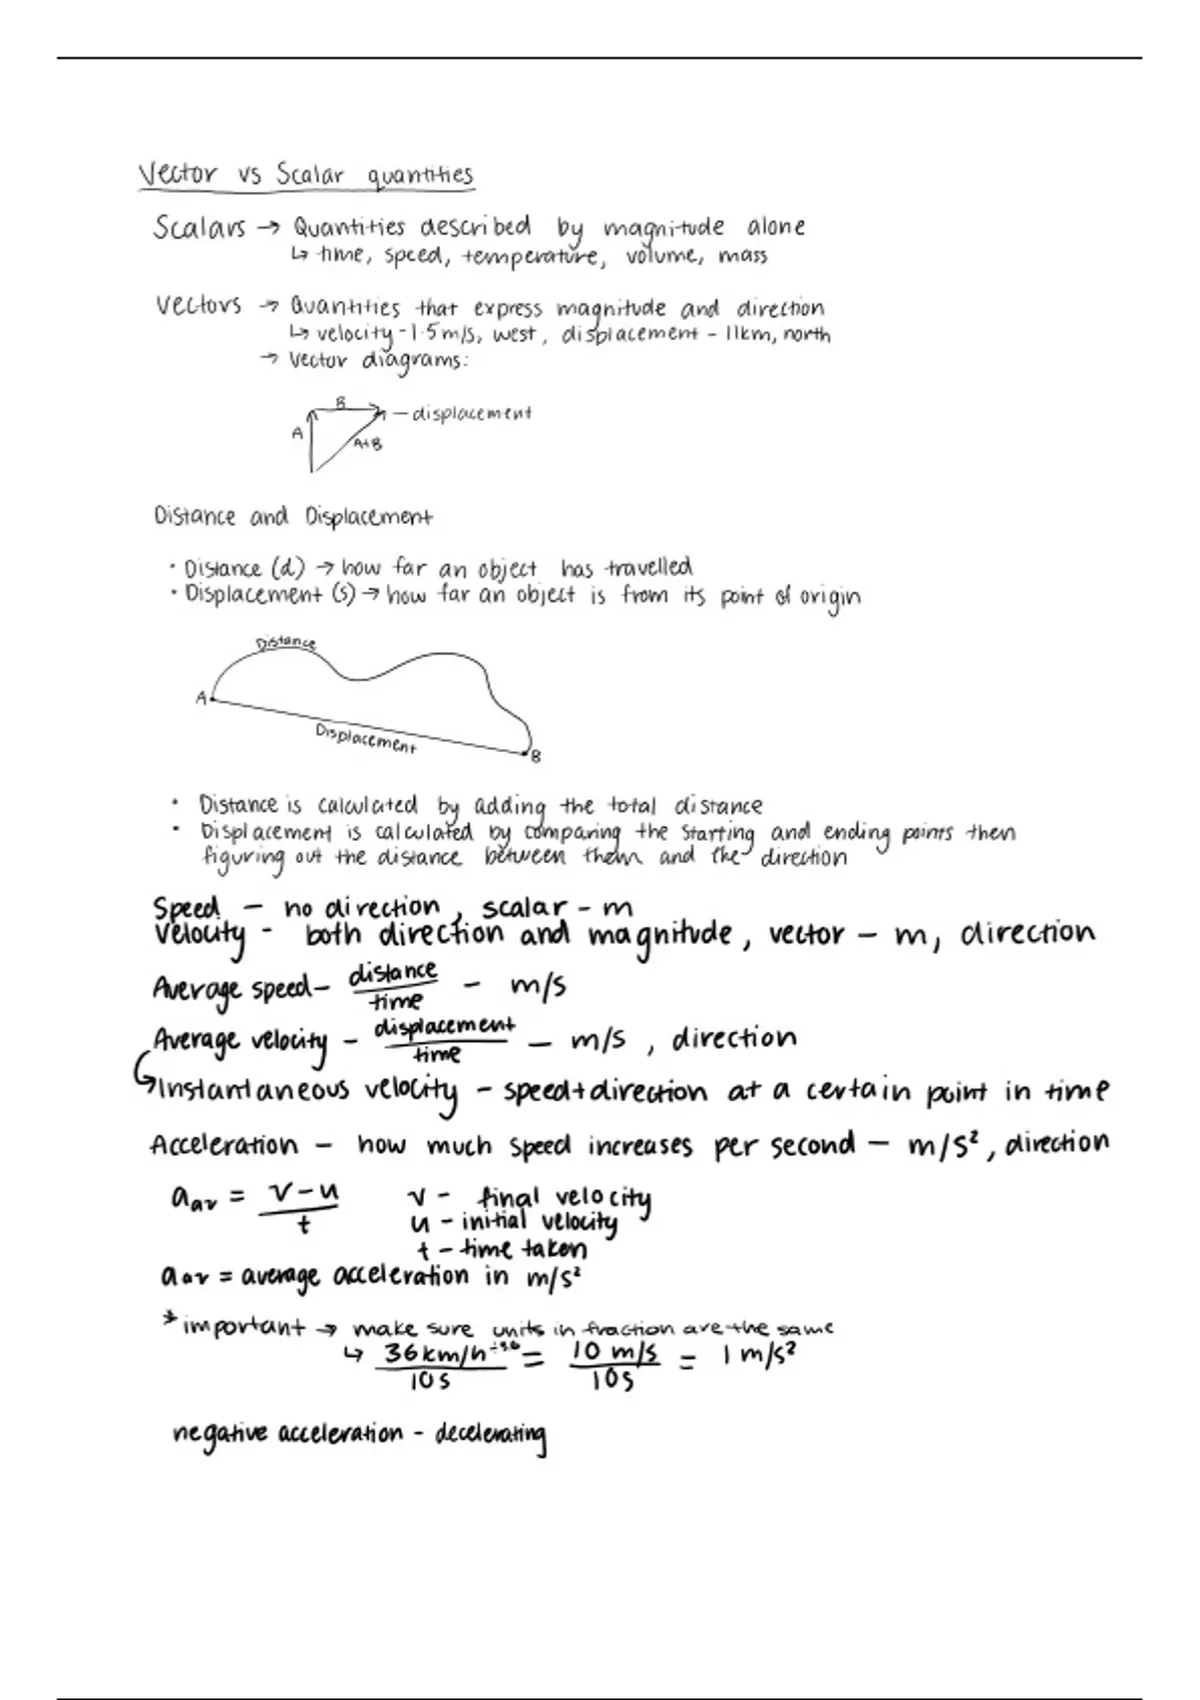 Vector vs Scalar quantities
Scalars → Quantities described by magnitude alone
↳ time, speed, temperature, volume, mass
Vectors → Quantities that express magnitude and direction
↳ velocity - 1.5m/s, west, displacement - 11km, north
→ Vector diagrams:
B
- displacement
A
A+B
Distance and Displacement
• Distance (d) → how far an object has travelled
• Displacement (s) → how far an object is from its point of origin
Distance
A
Displacement
B
• Distance is calculated by adding the total distance
• Displacement is calculated by comparing the starting and ending points then
figuring out the distance between them and the direction
Speed - no direction, scalar - m
Velocity - both direction and magnitude, vector - m, direction
Average speed - distance/time - m/s
Average velocity - displacement/time - m/s, direction
↳ Instantaneous velocity - speed+direction at a certain point in time
Acceleration - how much speed increases per second - m/s², direction
aav = v-u/t
v - final velocity
u - initial velocity
t - time taken
aav = average acceleration in m/s²
* important → make sure units in fraction are the same
↳ 36km/h ÷3.6/10s = 10 m/s/10s = 1 m/s²
negative acceleration - decelerating